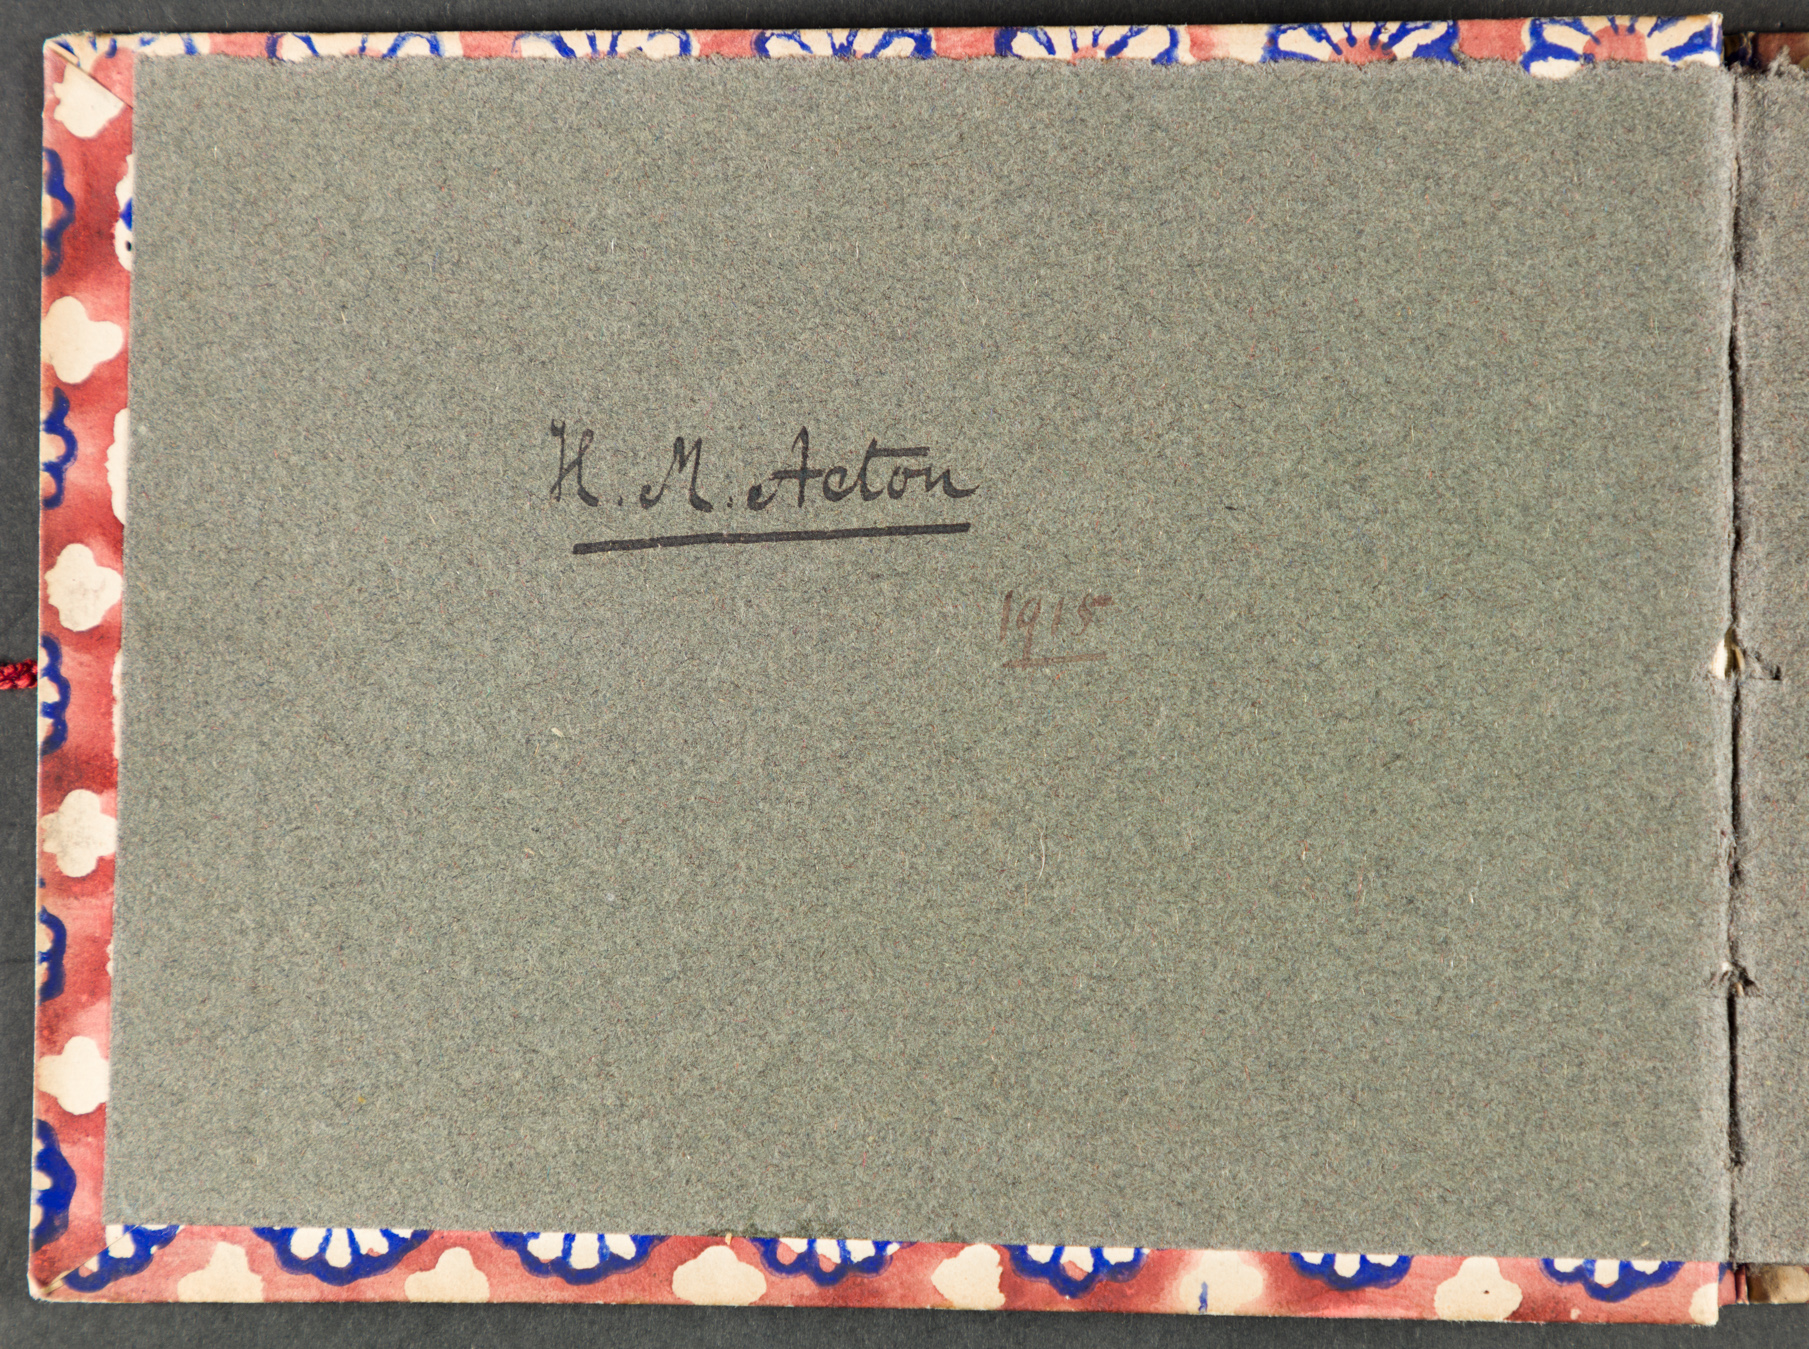 H. M. Acton
1915